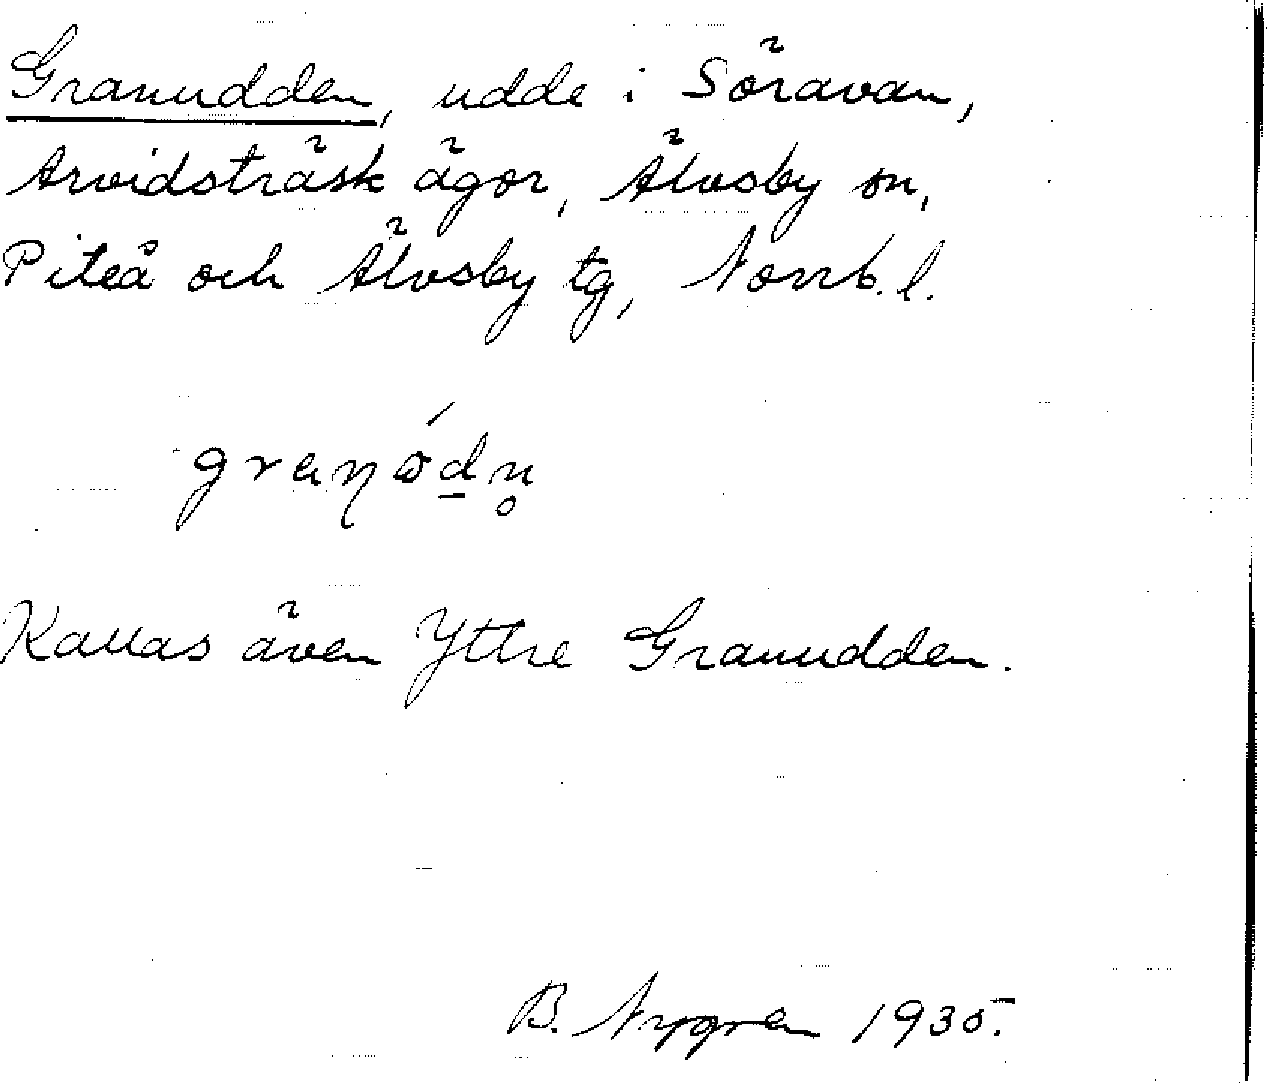 Granudden, udde i Söravan,
Arvidsträsk ägor, Älvsby sn,
Piteå och Älvsby tg, Norrb. l.
Kallas även Yttre Granudden.
B. Nygren 1935.